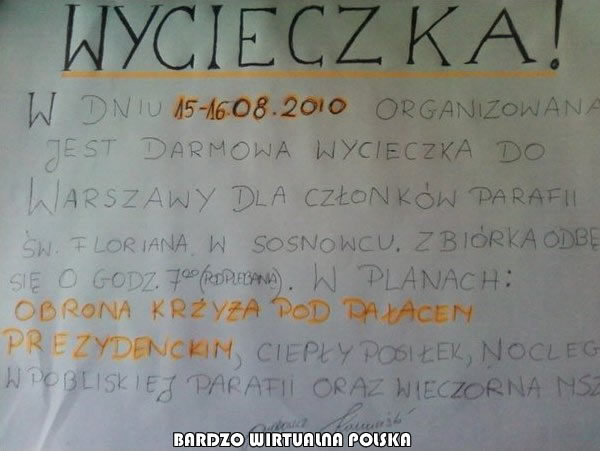 WYCIECZKA!
W DNIU 15-16.08.2010 ORGANIZOWANA
JEST DARMOWA WYCIECZKA DO
WARSZAWY DLA CZŁONKÓW PARAFII
ŚW. FLORIANA W SOSNOWCU. ZBIÓRKA ODBĘ
SIĘ O GODZ. 7⁰⁰ (POD PLEBANIĄ). W PLANACH:
OBRONA KRZYŻA POD PAŁACEM
PREZYDENCKIM, CIEPŁY POSIŁEK, NOCLEG
W POBLISKIEJ PARAFII ORAZ WIECZORNA MSZ
BARDZO WIRTUALNA POLSKA